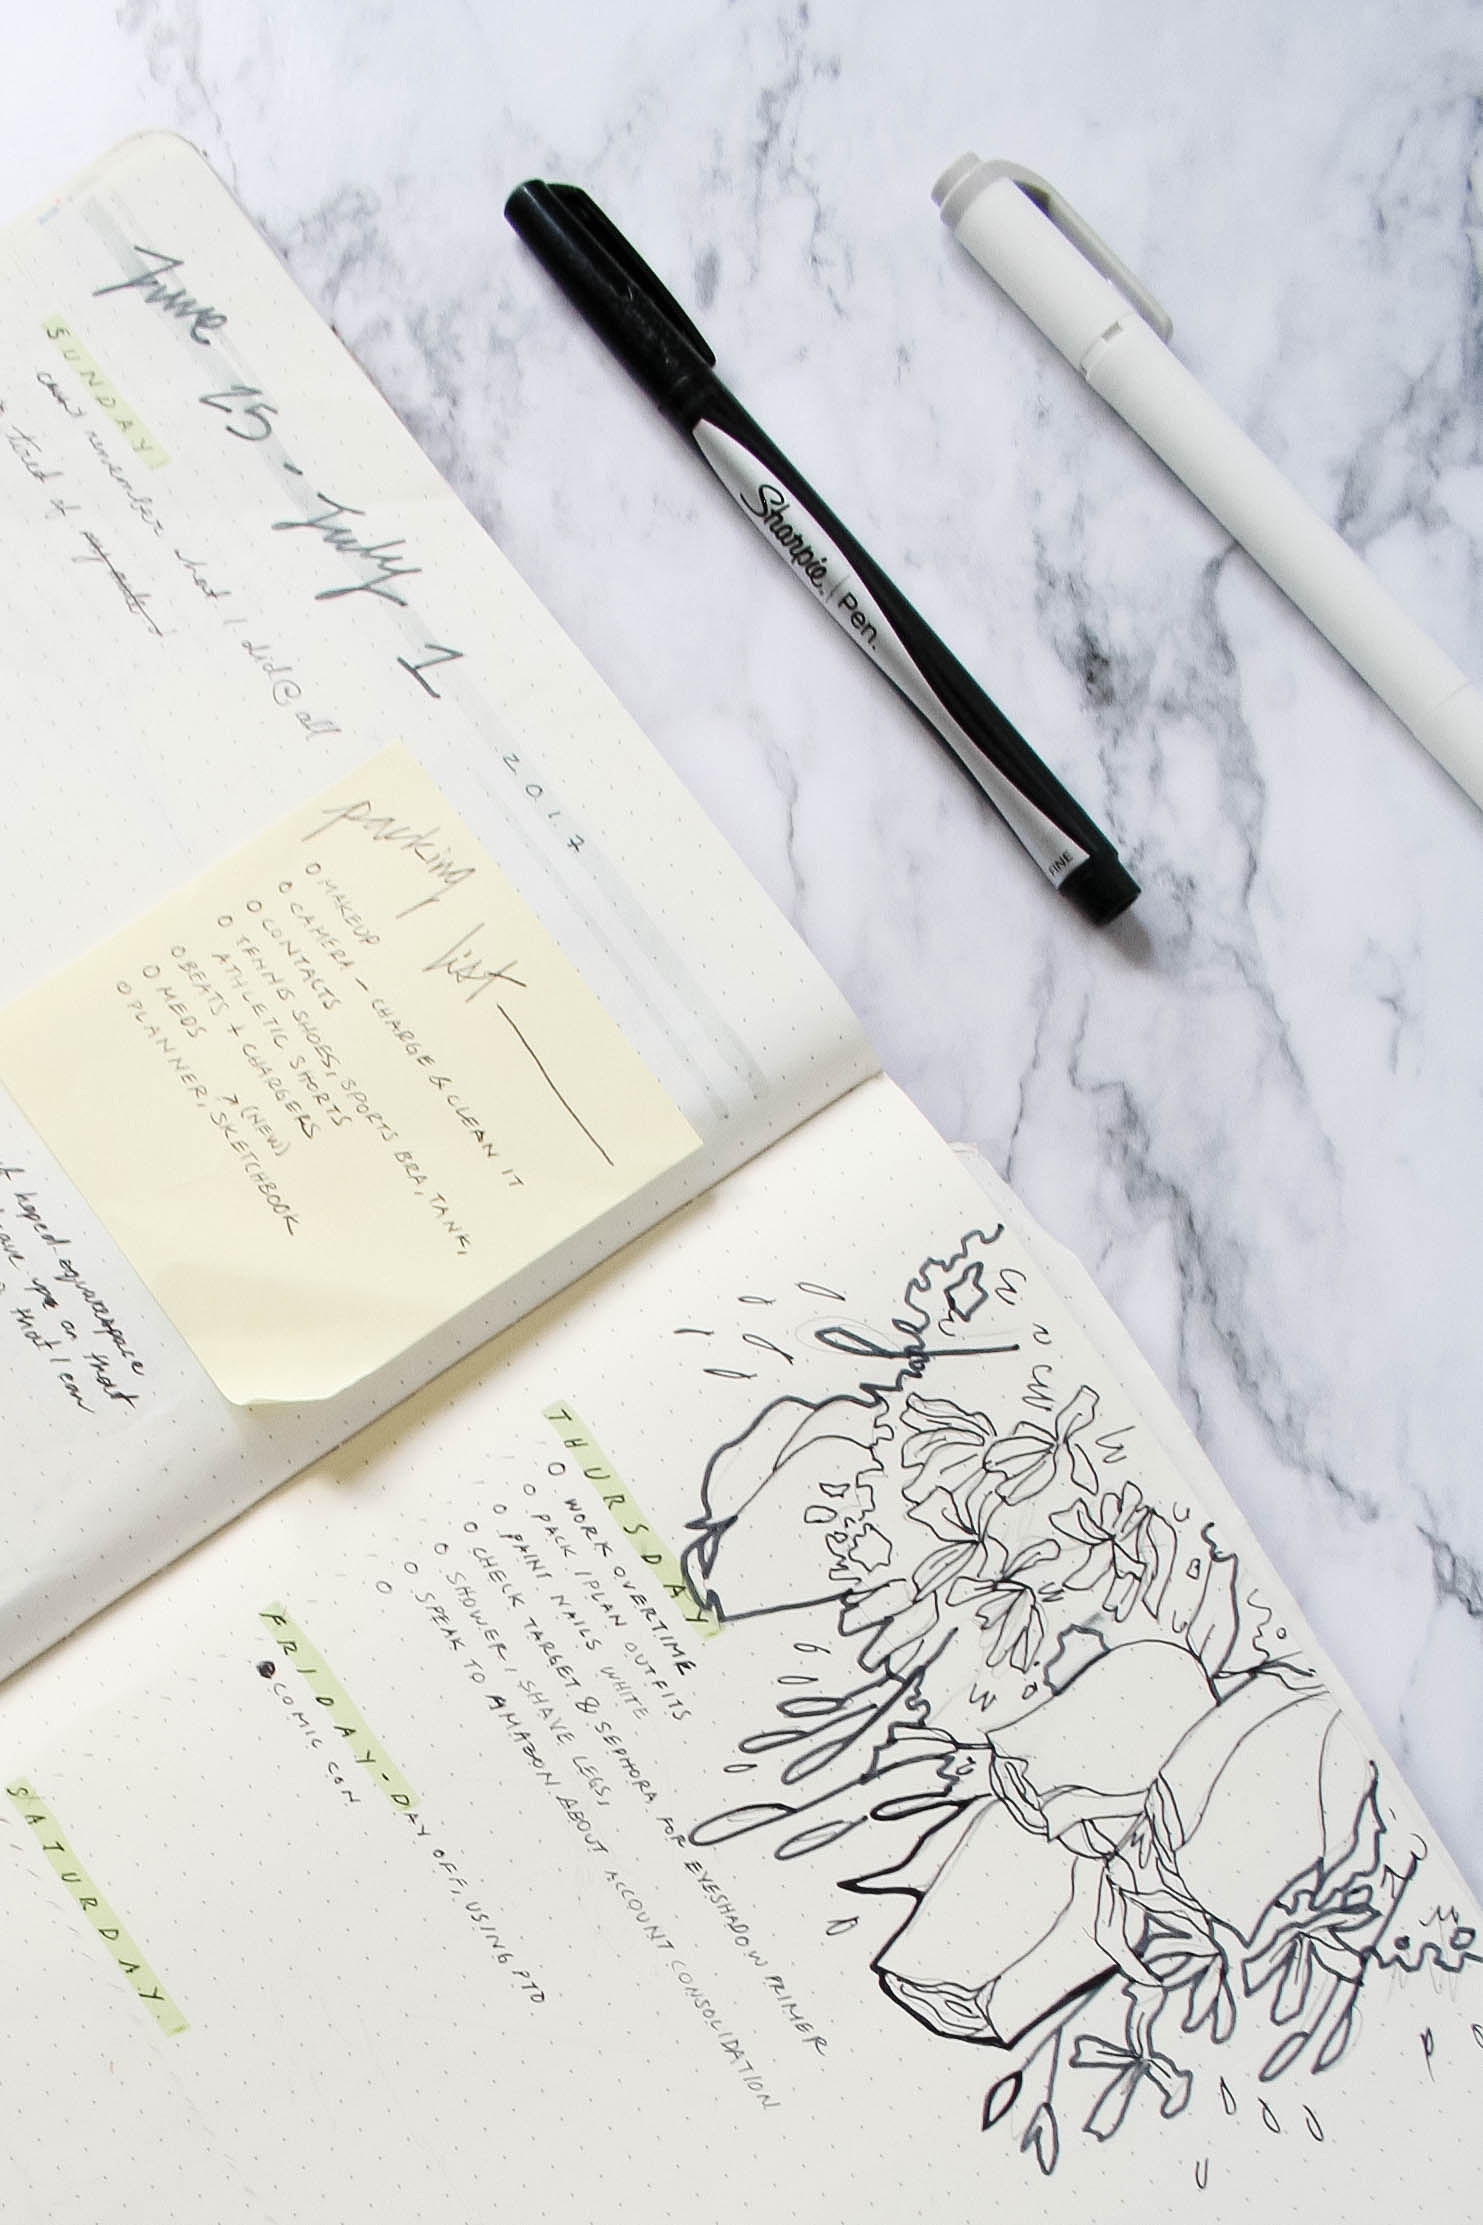 June 25 - July 1
2.0.1.7
SUNDAY
can't remember what I did @ all
tired of
packing list
O MAKEUP
O CAMERA - CHARGE & CLEAN IT
O CONTACTS
O TENNIS SHOES, SPORTS BRA, TANK,
ATHLETIC SHORTS
O BEATS + CHARGERS
O MEDS (NEW)
O PLANNER, SKETCHBOOK
hoped squarespace
on that
that I can
THURSDAY
O WORK OVERTIME
O PACK / PLAN OUTFITS
O PAINT NAILS WHITE
O CHECK TARGET & SEPHORA FOR EYESHADOW PRIMER
O SHOWER, SHAVE LEGS,
O SPEAK TO AMAZON ABOUT ACCOUNT CONSOLIDATION
O
FRIDAY - DAY OFF, USING PTO
• COMIC CON
SATURDAY
Sharpie. | Pen.
FINE